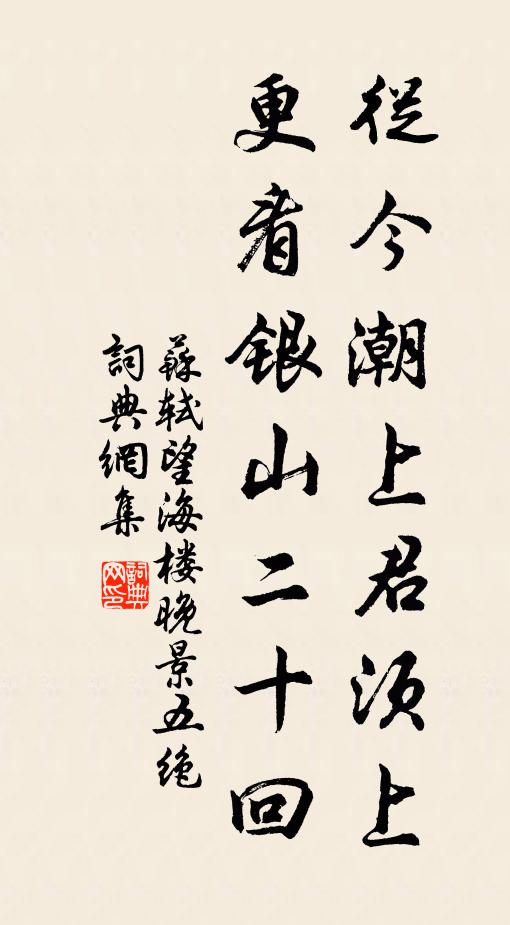 從今潮上君須上
更看銀山二十回
蘇軾望海楼晚景五绝
詞典網集
詞典网印